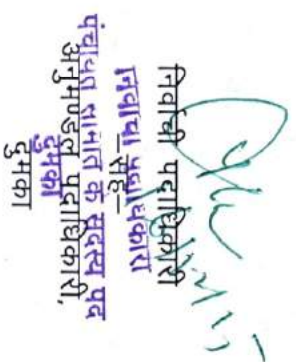 निर्वाची पदाधिकारी
निर्वाची पदाधिकारी
-सह-
पंचायत समिति के सदस्य पद
अनुमण्डल पदाधिकारी,
दुमका
दुमका